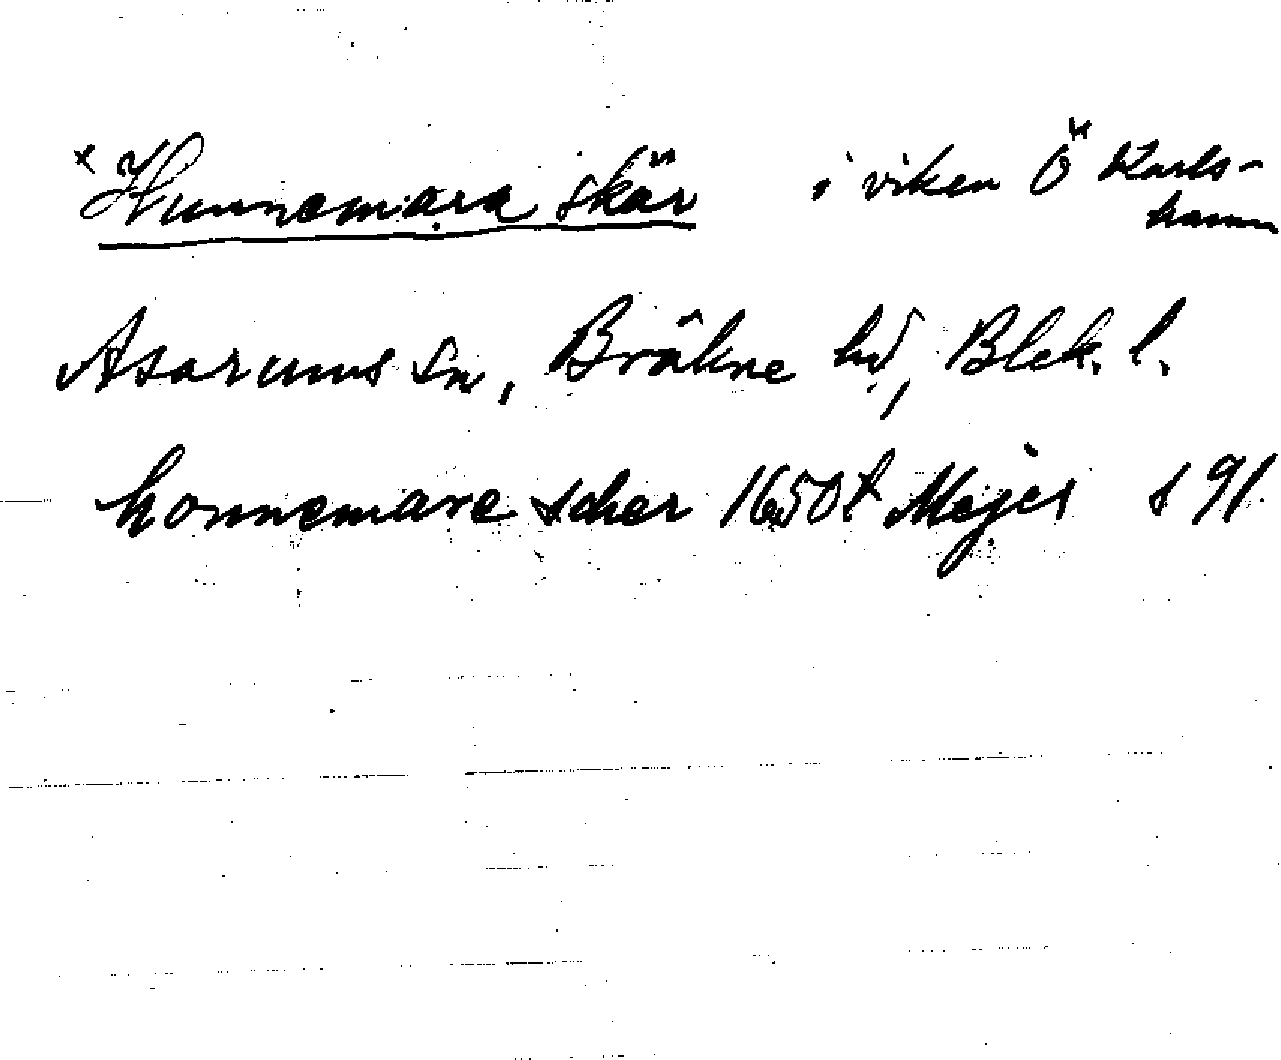 × Hunnemara skär i viken Ö Karls-
hamn
Asarums sn, Bräkne hd, Blek. l.
honnemare scher 1650t Mejer s 91